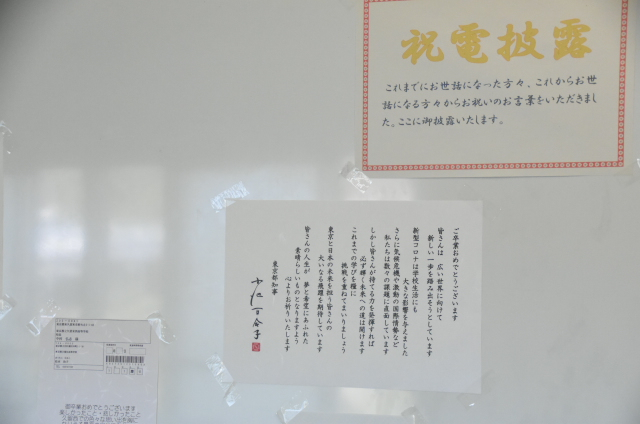 祝電披露
これまでにお世話になった方々、これからお世
話になる方々からお祝いのお言葉をいただきまし
た。ここに御披露いたします。
ご卒業おめでとうございます
皆さんは 広い世界に向けて
新しい一歩を踏み出そうとしています
新型コロナは学校生活にも
大きな影響を与えました
さらに気候危機や激動の国際情勢など
私たちは数々の課題に直面しています
しかし皆さんが持てる力を発揮すれば
必ず輝く未来への道は開けます
これまでの学びを糧に
挑戦を重ねてまいりましょう
東京と日本の未来を担う皆さんの
大いなる飛躍を期待しています
皆さんの人生が 夢と希望にあふれた
素晴らしいものとなりますよう
心よりお祈りいたします
東京都知事
小池百合子
御卒業おめでとうございます
楽しかったこと・悲しかったこと